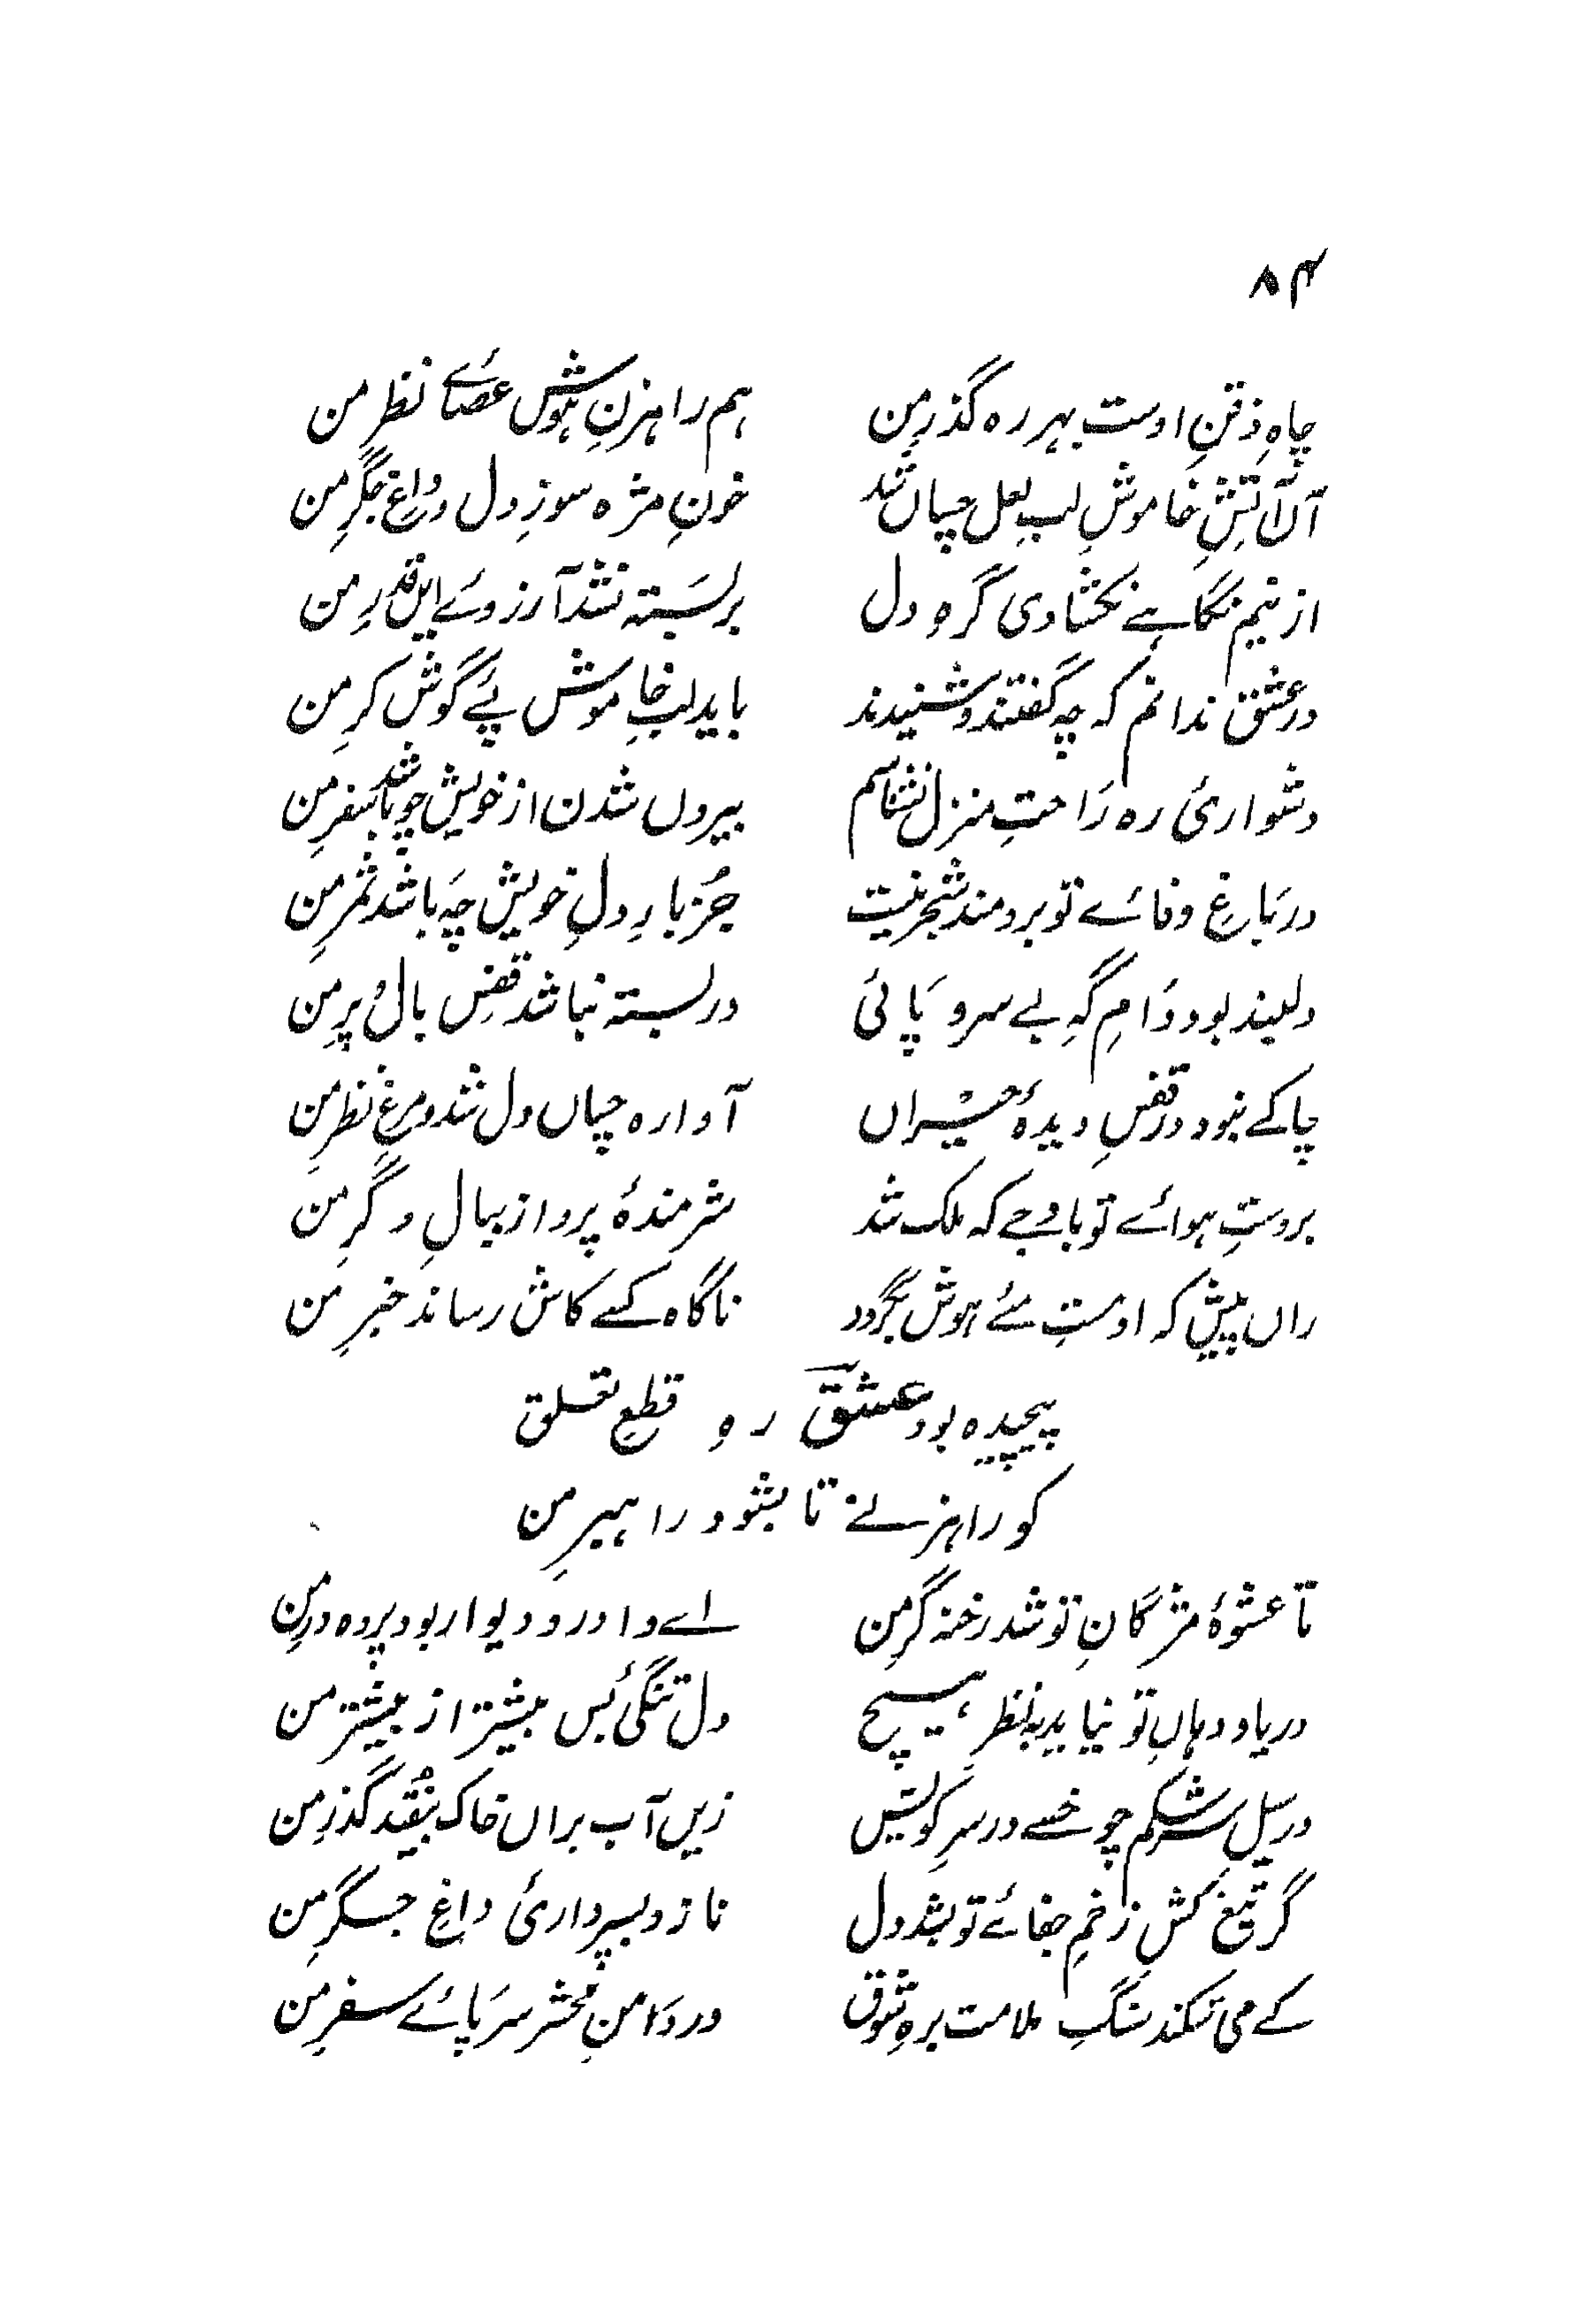 ۸۴
چاہِ ذقنِ اوست بہر رہ گذرِ من ہم راہزنِ ہوش عصائے نظرِ من
آں آتشِ خاموشِ لبِ لعل چساں شد خونِ مژہ سوزِ دل و داغِ جگرِ من
از نیم نگاہے نکشادی گرہِ دل بر بستہ نشد آرزوئے ایں قدرِ من
در عشق ندانم کہ چہ گفتند و شنیدند باید لبِ خاموش پئے گوش کرِ من
دشواریٔ رہ راحتِ منزل نشناسم بیروں شدن از خویش چو باشد سفرِ من
در باغِ وفائے تو برومند شجر نیست جُز بارِ دلِ خویش چہ باشد ثمرِ من
دلبند بود دامِ گہِ بے سر و پائی در بستہ نباشد قفسِ بال و پرِ من
چاکے نبود در قفسِ دیدۂ حیراں آوارہ چساں دل شد و مرغِ نظرِ من
بر دستِ ہوائے تو باوجے کہ ملک شد شرمندۂ پرواز ببالِ دگرِ من
زاں پیش کہ او مستِ مئے ہوش بگردد ناگاہ کسے کاش رساند خبرِ من
پیچیدہ بود عشق رہِ قطعِ تعلق
کو راہزنے تا بشود راہبرِ من
تا عشوۂ مژگانِ تو شد رخنہ گرِ من اے وا در و دیوار بود پردہ درِ من
در یادِ دہانِ تو نیاید بہ نظر ہیچ دل تنگیٔ بس بیشتر از بیشترِ من
در سیلِ سرشکم چو خسے در سرِ کویش زیں آب براں خاک بیفتد گذرِ من
گر تیغ کش زخمِ جفائے تو بشد دل نازد بسپرداریٔ داغِ جگرِ من
کے می شکند سنگِ ملامت برہِ شوق در دامنِ محشر سرِ پائے سفرِ من